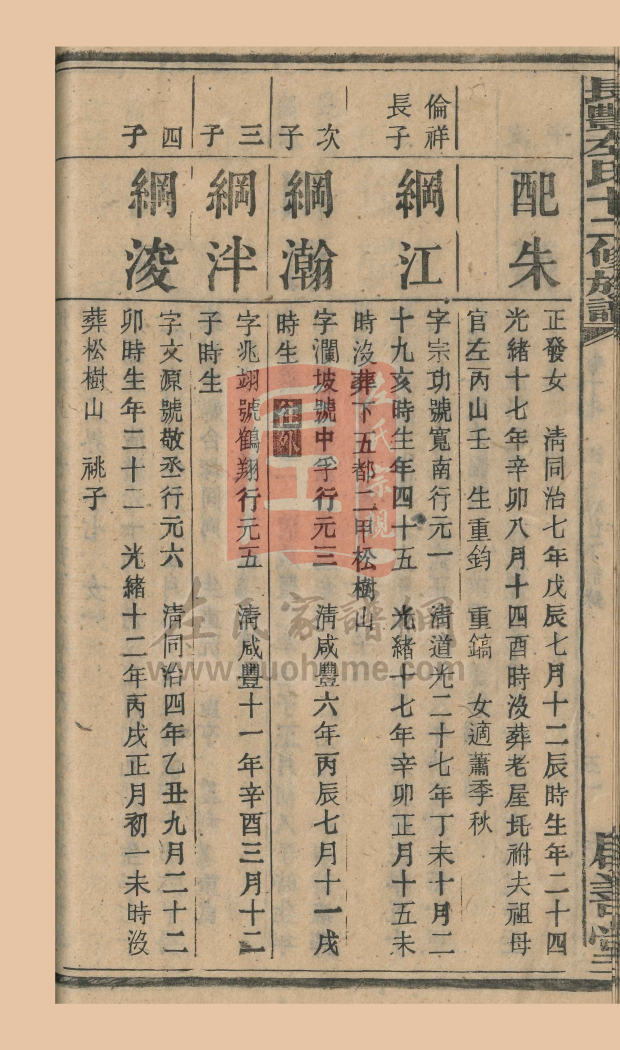 長豐左氏十二修族譜
配朱
正發女　清同治七年戊辰七月十二辰時生年二十四
光緒十七年辛卯八月十四酉時沒葬老屋坵祔夫祖母
官左丙山壬　生重鈞　重鎬　女適蕭季秋
倫祥
長子
綱江
字宗功號寬南行元一　清道光二十七年丁未十月二
十九亥時生年四十五　光緒十七年辛卯正月十五未
時沒葬下五都二甲松樹山
次
子
綱瀚
字瀾坡號中孚行元三　清咸豐六年丙辰七月十一戌
時生　在外
三
子
綱泮
字兆翊號鶴翔行元五　清咸豐十一年辛酉三月十二
子時生
四
子
綱浚
字文源號敬丞行元六　清同治四年乙丑九月二十二
卯時生年二十二　光緒十二年丙戌正月初一未時沒
葬松樹山　祧子
左氏宗親
左氏家譜網
www.zuohome.com